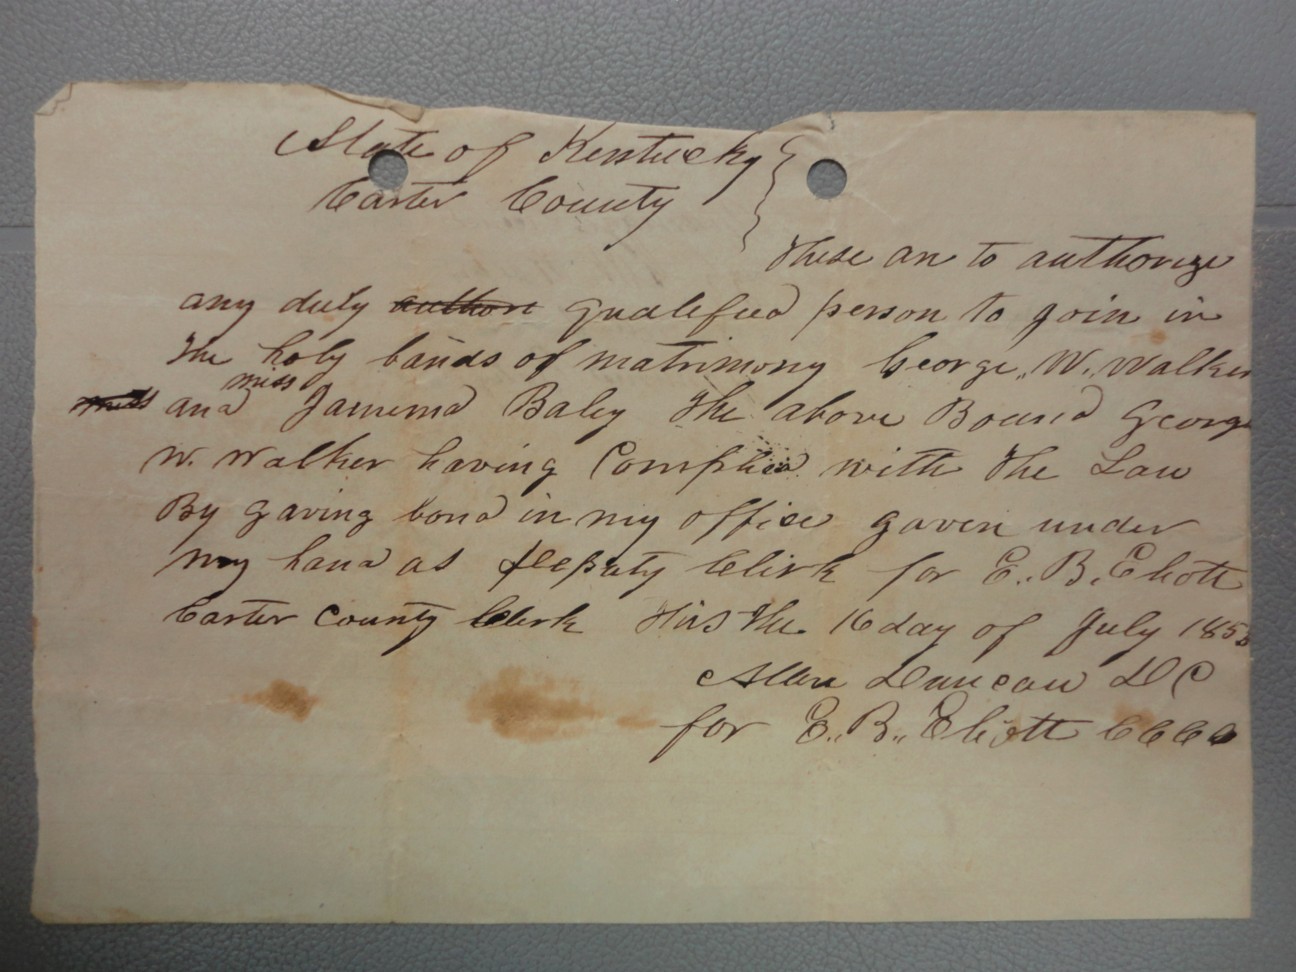 State of Kentucky }
Carter County }
These are to authorize
any duly authori qualified person to join in
the holy bands of matrimony George W. Walker
miss
and Jamima Baley the above Bound George
W. Walker having Complied with the Law
By gaving bond in my office gaven under
my hand as Deputy Clirk for E. B. Eliott
Carter County Clerk this the 16 day of July 185
Allen Duncan D C
for E. B. Eliott CCC